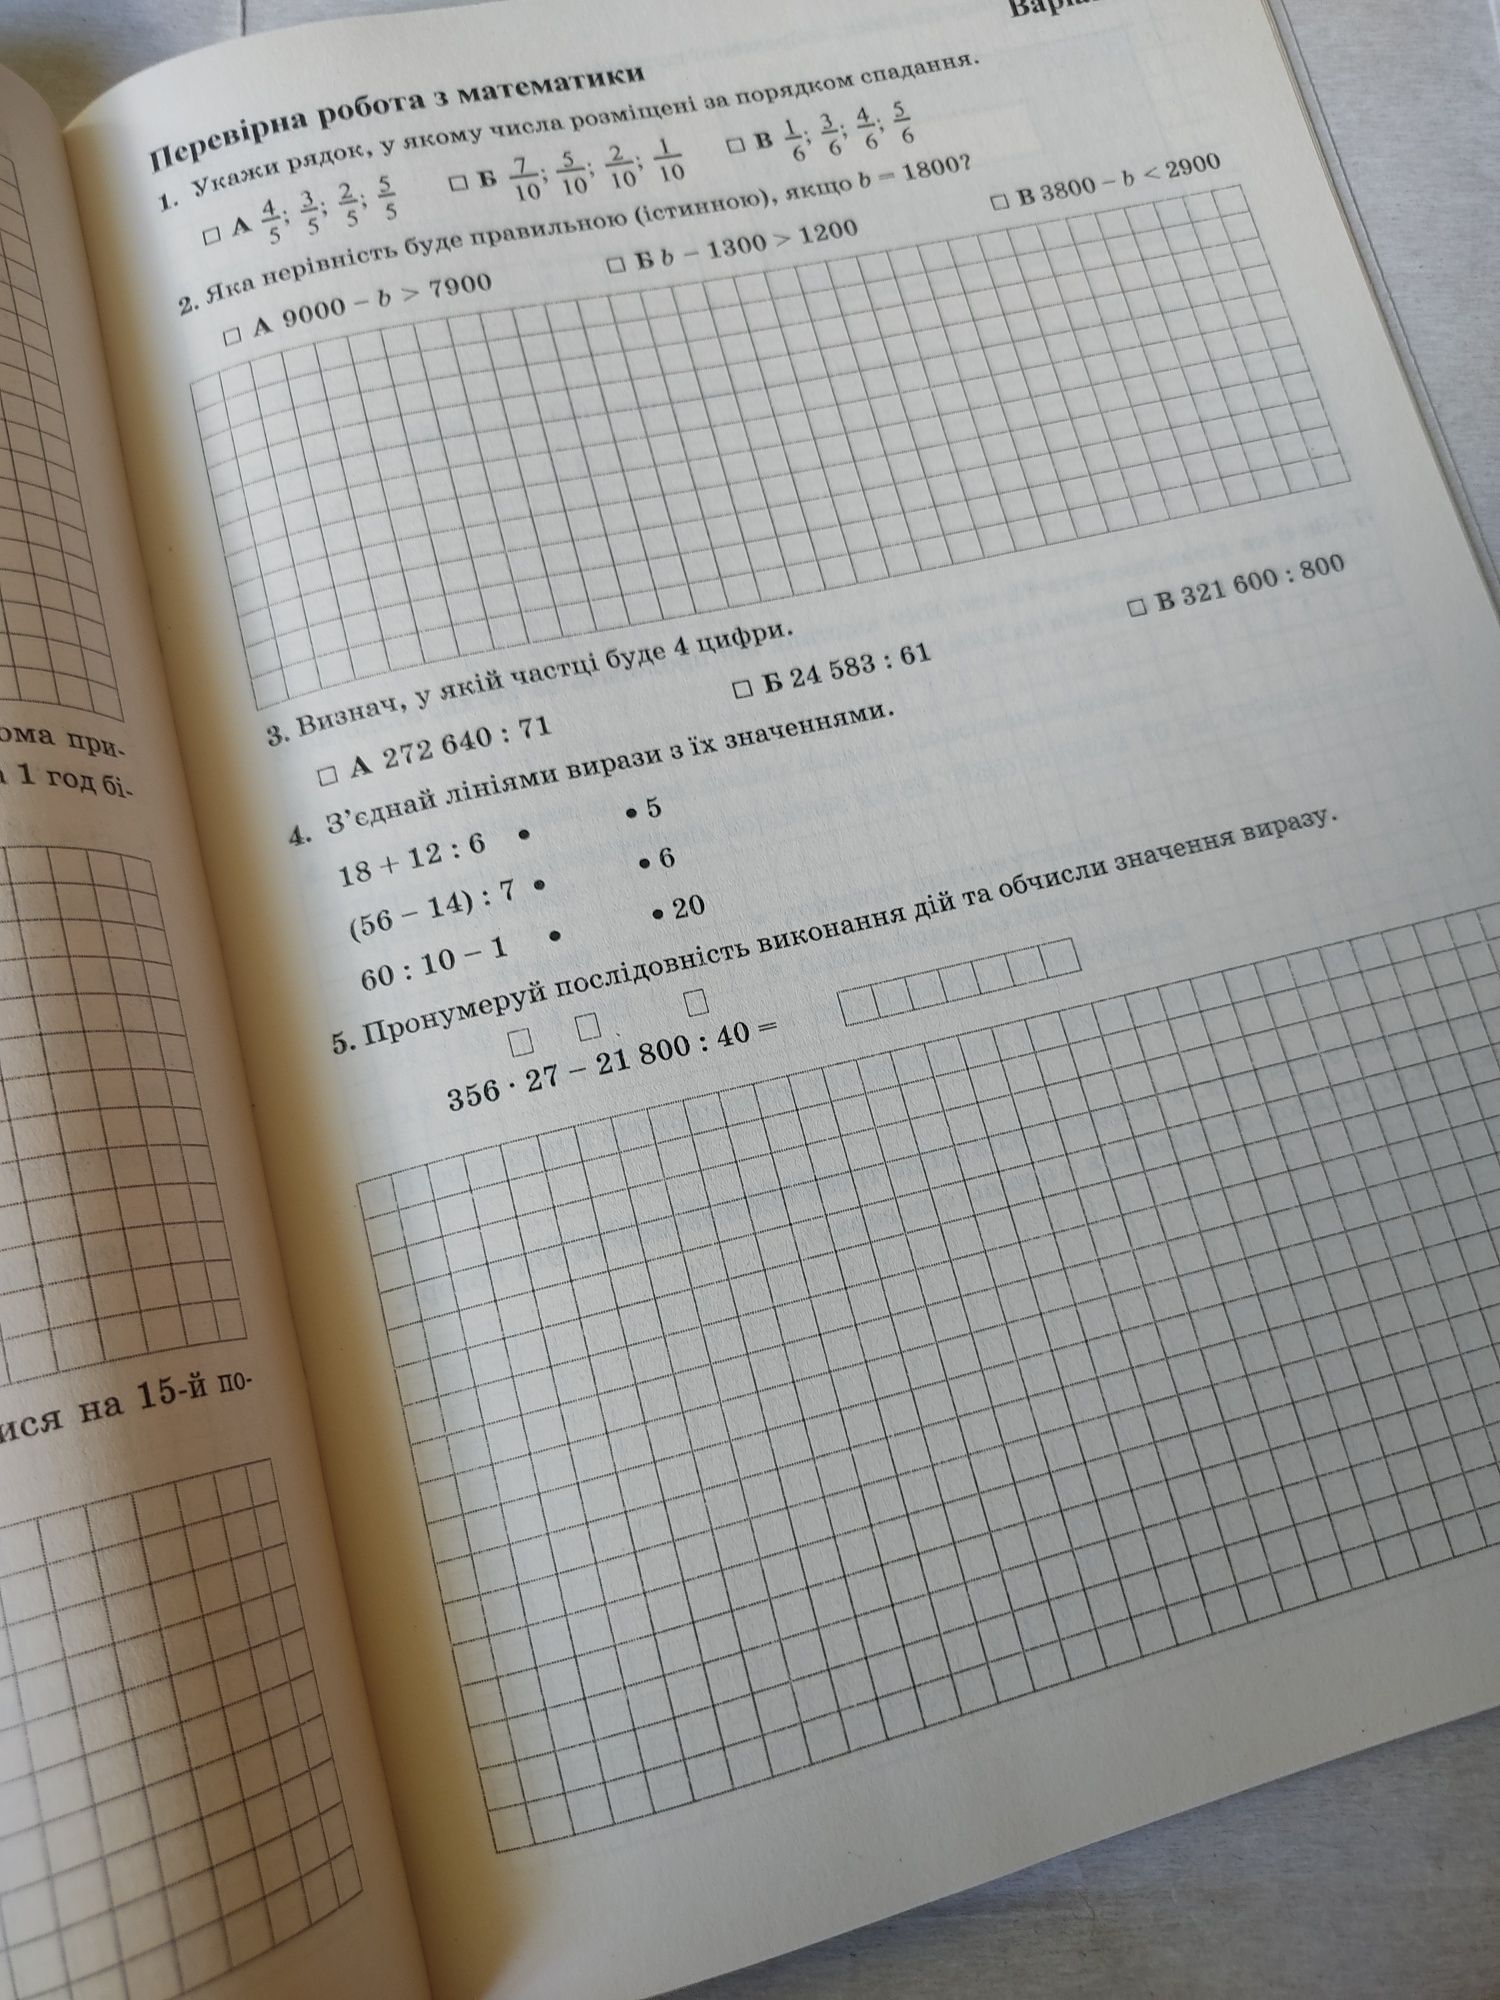 Перевірна робота з математики
1. Укажи рядок, у якому числа розміщені за порядком спадання.
□ А 4/5; 3/5; 2/5; 5/5 □ Б 7/10; 5/10; 2/10; 1/10 □ В 1/6; 3/6; 4/6; 5/6
2. Яка нерівність буде правильною (істинною), якщо b = 1800?
□ А 9000 − b > 7900 □ Б b − 1300 > 1200 □ В 3800 − b < 2900
3. Визнач, у якій частці буде 4 цифри.
□ А 272 640 : 71 □ Б 24 583 : 61 □ В 321 600 : 800
4. З’єднай лініями вирази з їх значеннями.
18 + 12 : 6 • • 5
(56 − 14) : 7 • • 6
60 : 10 − 1 • • 20
5. Пронумеруй послідовність виконання дій та обчисли значення виразу.
356 · 27 − 21 800 : 40 =
при-
1 год бі-
на 15-й по-